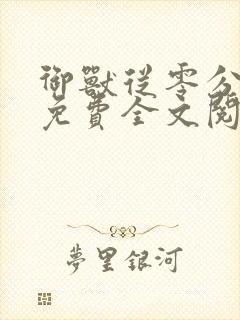 御獸從零分
免費全文閱
夢里銀河